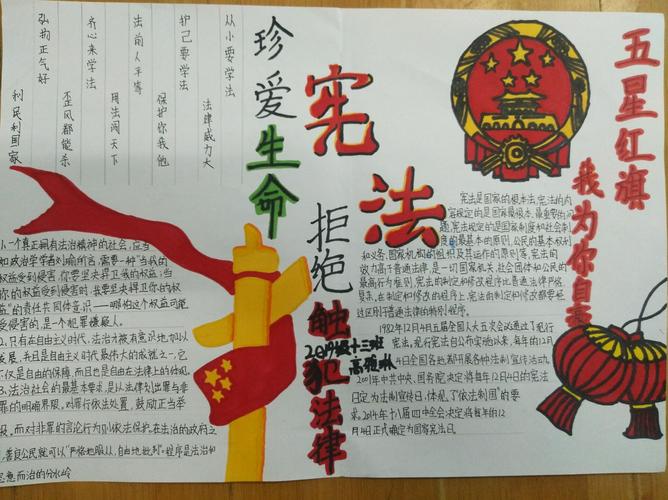 从小要学法
法律威力大
护己要学法
保护你我他
法前人平等
用法闯天下
齐心来学法
歪风都能杀
弘扬正气好
利民利国家
珍爱生命
拒绝触犯法律
宪法
2019级十三班
五星红旗
我为你自豪
1.一个真正拥有法治精神的社会，应当
如政治学学者刘瑜所言，需要一种"当我的
权益受到侵害，你要坚决捍卫我的权益；当
你的权益受到侵害时，我要坚决捍卫你的权
益"的责任共同体意识——哪怕这个权益可能
受侵害的，是一个犯罪嫌疑人。
2.只有在自由主义时代，法治才被有意识地加以
发展，并且是自由主义时代最伟大的成就之一，它
不仅是自由的保障，而且也是自由在法律上的体现。
3.法治社会的最基本要求，是从法律划出罪与非
罪的明确界限，对罪行依法处置，鼓励正当举
报，而对非罪的言论行为则依法保护，在法治的政府之
，善良公民就可以"严格地服从，自由地批判"程序是法治和
恣意而治的分水岭
宪法是国家的根本法，宪法的内
容规定的是国家最根本、最重要的问
题，宪法规定的是国家制度和社会制
度的最基本的原则，公民的基本权利
和义务，国家机构的组织及其运作的原则等，宪法的
效力高于普通法律，是一切国家机关、社会团体和公民的
最高行为准则，宪法的制定和修改程序比普通法律严格、
复杂，在制定和修改的程序上，宪法的制定和修改都要经
过区别于普通法律的特别程序。
1982年12月4月五届全国人大五次会议通过了现行
宪法，现行宪法自公布实施以来，每年的12月
4日全国各地都开展各种法制宣传活动，
2001年中共中央、国务院决定将每年12月4日的宪法
日定为法制宣传日，体现了"依法制国"的要
求。2014年十八届四中全会决定将每年的12
月4日正式确定为国家宪法日。